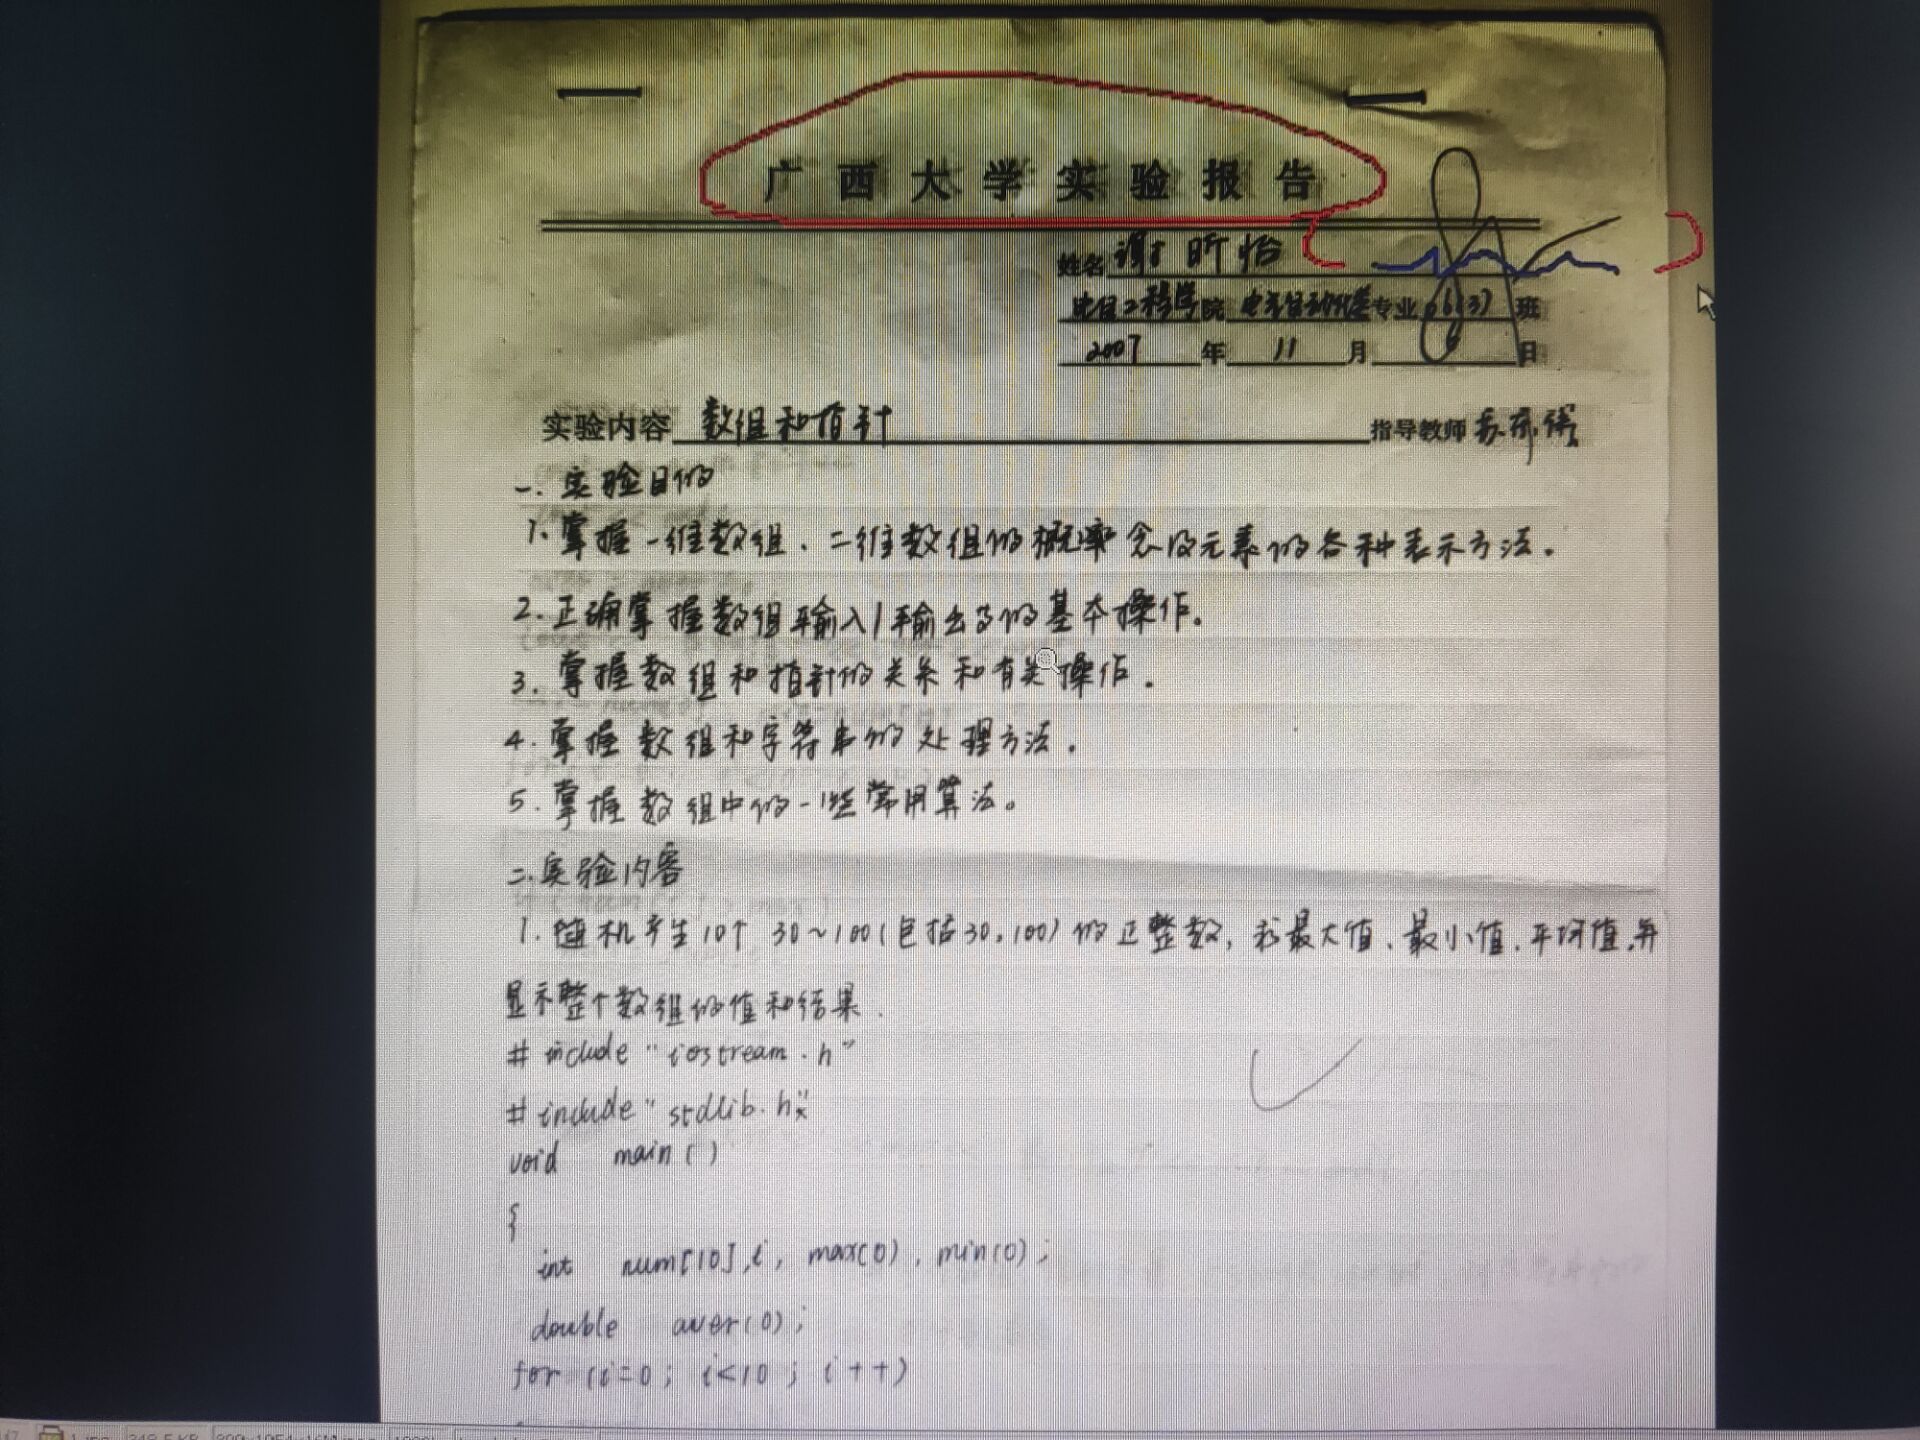 广西大学实验报告
姓名 谢昕怡
电气工程学院 电气自动化类专业 06(3) 班
2007 年 11 月 6 日
实验内容 数组和指针 指导教师
一. 实验目的
1. 掌握一维数组、二维数组的概念及元素的各种表示方法。
2. 正确掌握数组输入/输出等的基本操作。
3. 掌握数组和指针的关系和有关操作.
4. 掌握数组和字符串的处理方法.
5. 掌握数组中的一些常用算法。
二. 实验内容
1. 随机产生10个 30~100(包括30,100)的正整数, 求最大值、最小值、平均值,并
显示整个数组的值和结果.
# include "iostream.h"
# include "stdlib.h"
void main ( )
{
int num[10],i, max(0), min(0);
double aver(0);
for (i=0; i<10; i++)